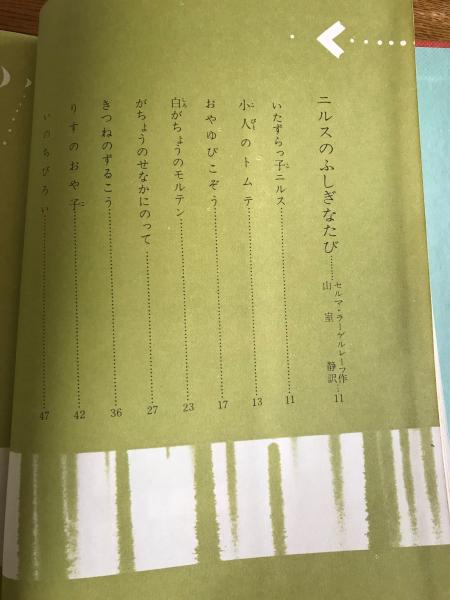 ニルスのふしぎなたび……セルマ・ラーゲルレーフ作 山室静訳…11
いたずらっ子ニルス……11
小人のトムテ……13
おやゆびこぞう……17
白がちょうのモルテン……23
がちょうのせなかにのって……27
きつねのずるこう……36
りすのおや子……42
いのちびろい……47